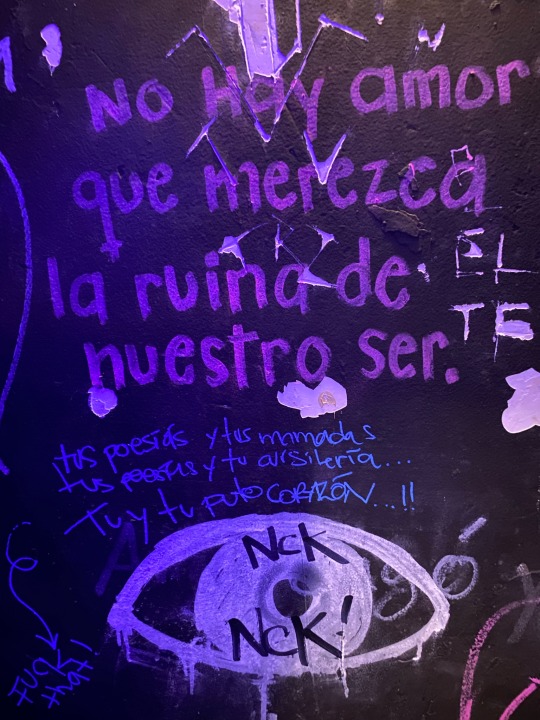 No Hay amor
que merezca
la ruina de
nuestro ser.
EL
TE
tus poesías y tus mamadas
tus poesías y tu cursilería...
Tu y tu puto CORAZÓN...!!
NCK
NCK!
FUCK
that!